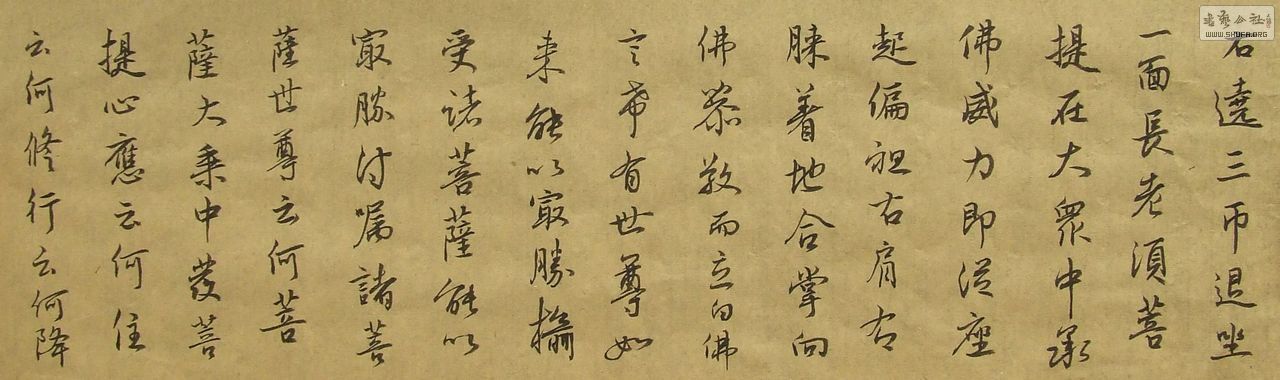 右遶三帀退坐
一面長老須菩
提在大衆中承
佛威力即從座
起偏袒右肩右
膝着地合掌向
佛恭敬而立白佛
言希有世尊如
来能以冣勝攝
受諸菩薩能以
冣勝付嘱諸菩
薩世尊云何菩
薩大乗中發菩
提心應云何住
云何修行云何降
书艺公社
WWW.SHUFA.ORG